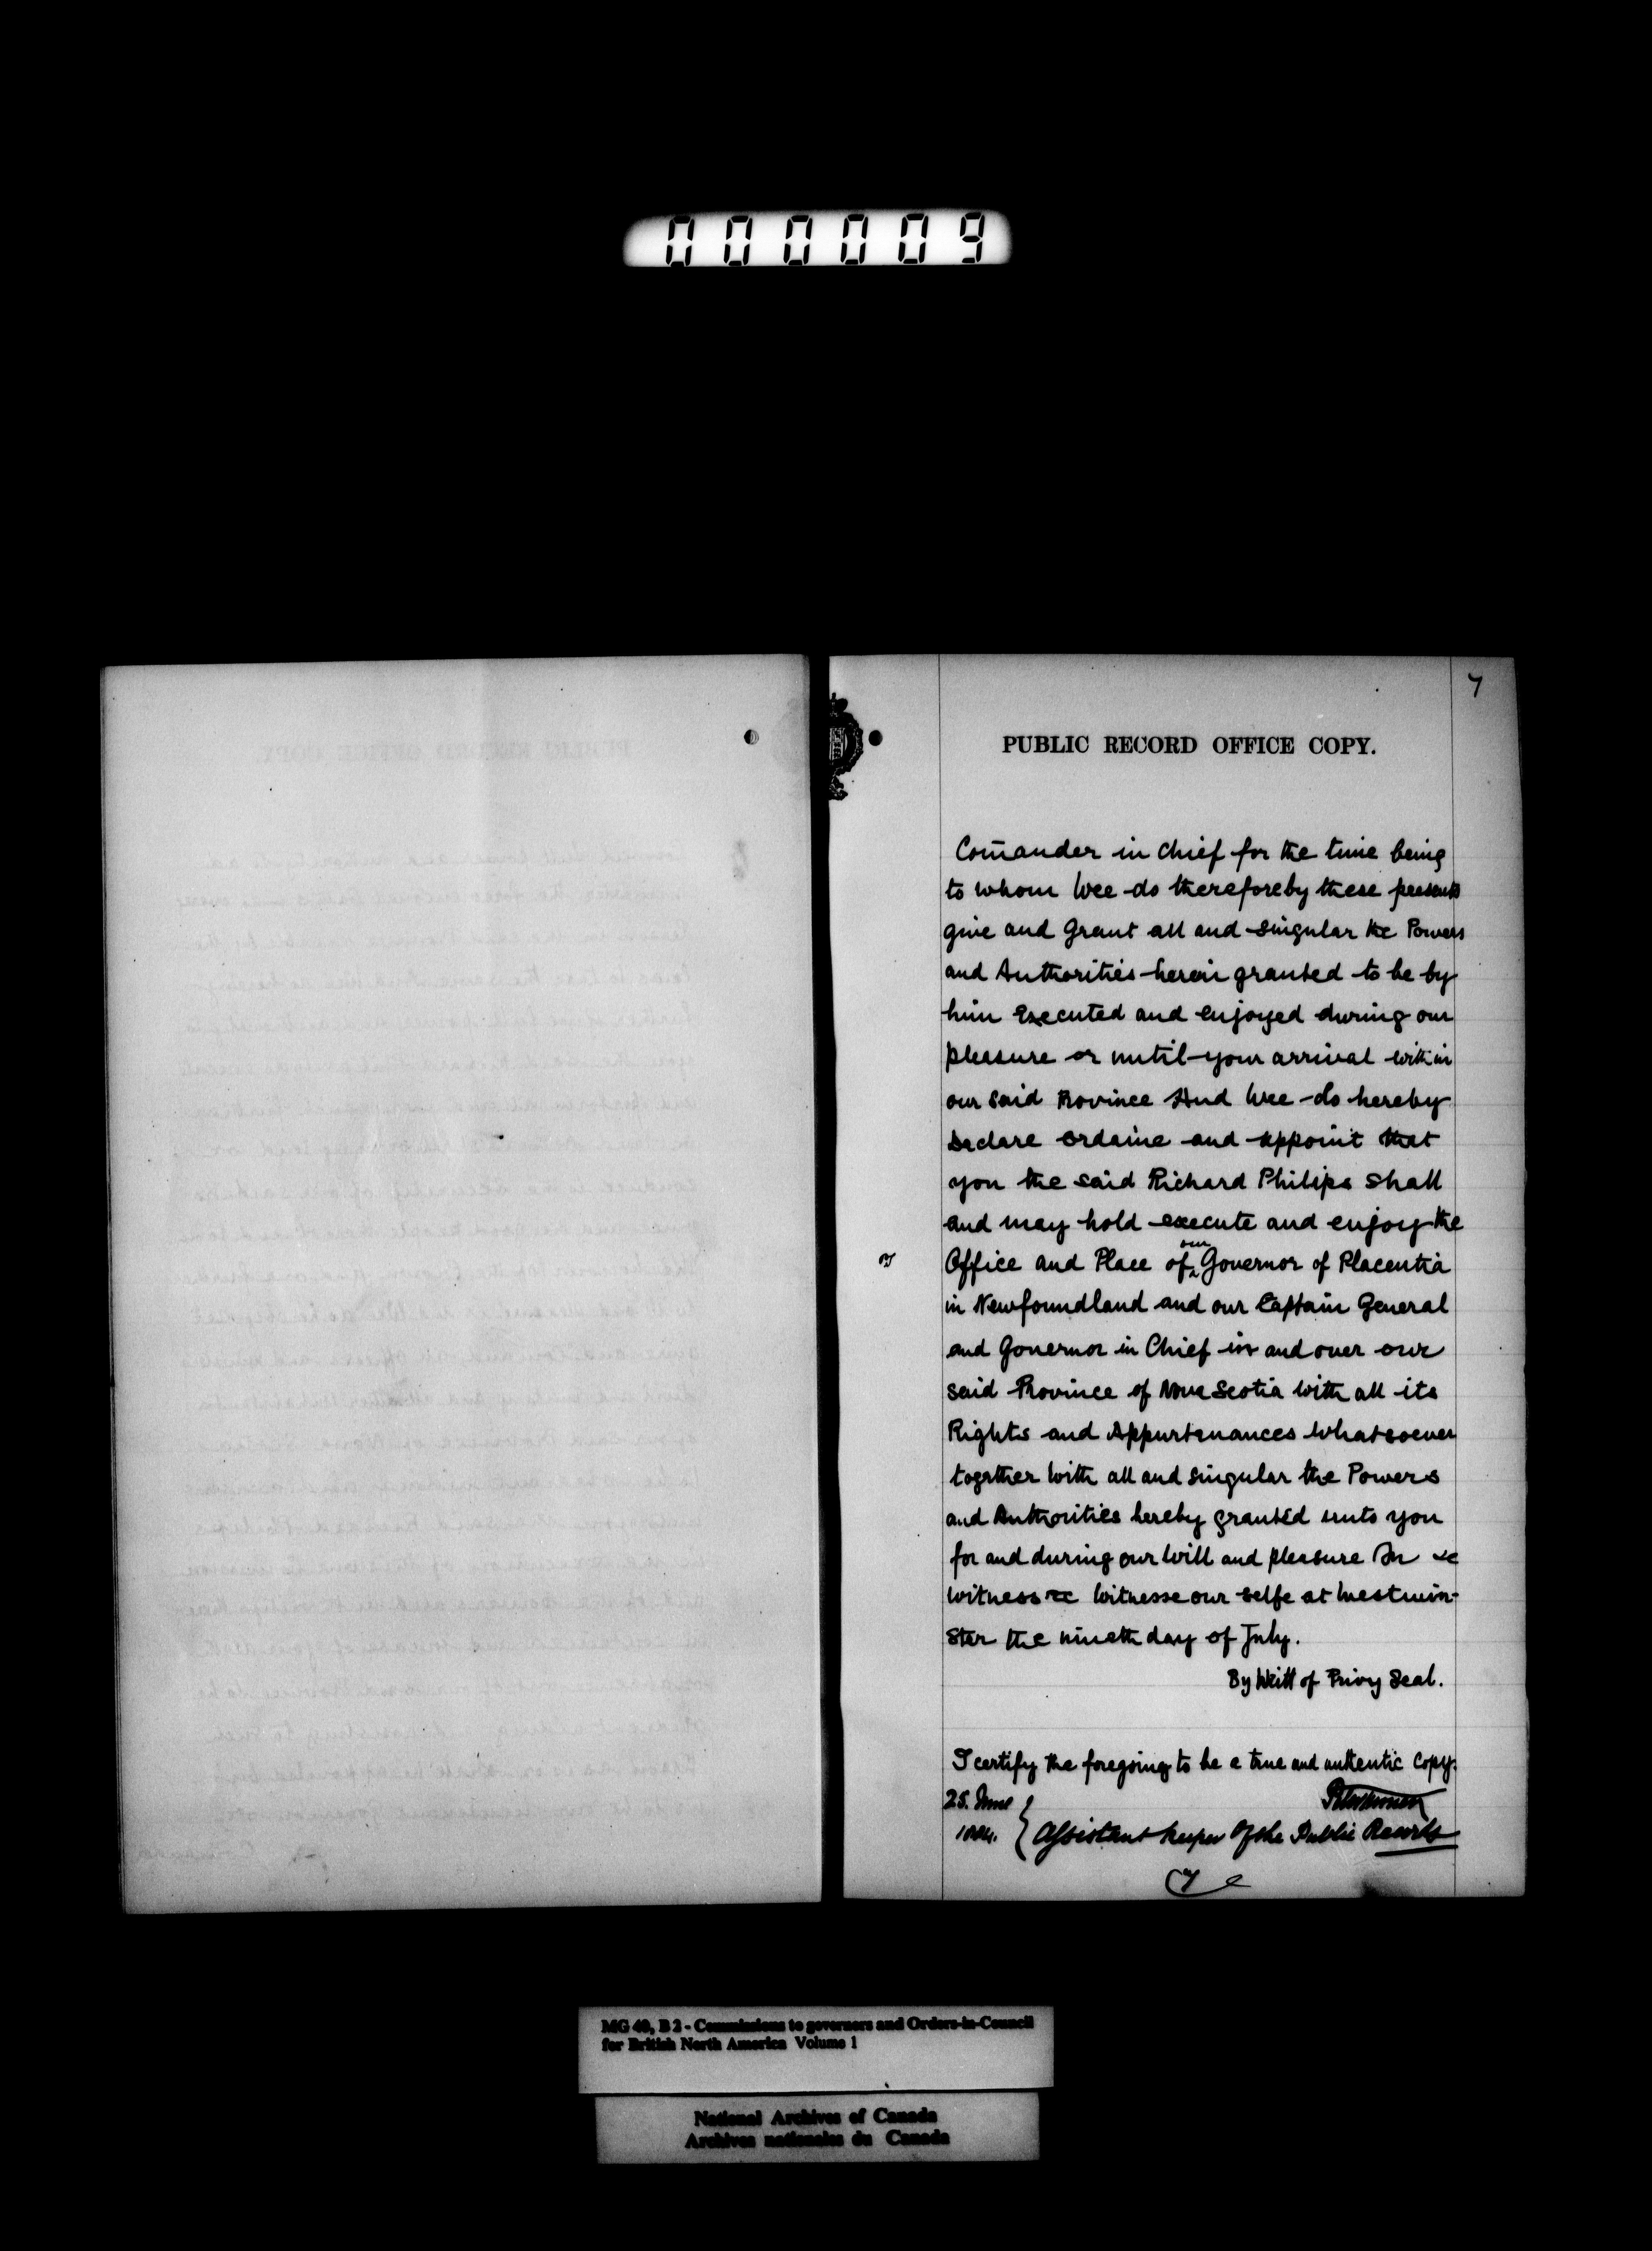 000009
7
PUBLIC RECORD OFFICE COPY.
Com̄ander in Chief for the time being
to whom Wee do thereforeby these presents
give and Grant all and singular the Powers
and Authorities herein granted to be by
him Executed and enjoyed during our
pleasure or until your arrival within
our said Province And Wee do hereby
Declare ordaine and appoint that
you the said Richard Philips shall
and may hold execute and enjoy the
Office and Place of our Governor of Placentia
in Newfoundland and our Captain General
and Governor in Chief in and over our
said Province of Nova Scotia with all its
Rights and Appurtenances Whatsoever
together with all and singular the Powers
and Authorities hereby granted unto you
for and during our Will and pleasure In &c
witness &c Witnesse our selfe at Westmin-
ster the nineth day of July.
By Writt of Privy Seal.
I certify the foregoing to be a true and authentic Copy.
25. June
Assistant Keeper of the Public Records
7
MG 40, B 2 - Commissions to governors and Orders-in-Council
for British North America Volume 1
National Archives of Canada
Archives nationales du Canada